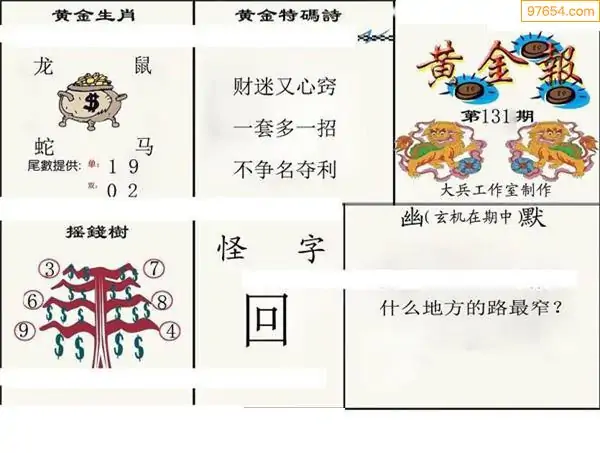 97654.com
黄金生肖
龙 鼠
蛇 马
尾數提供: 单: 1 9
双: 0 2
黄金特碼詩
财迷又心窍
一套多一招
不争名夺利
黄金報
第131期
大兵工作室制作
摇錢樹
③ ⑦
⑥ ⑧
⑨ ④
怪 字
回
幽(玄机在期中)默
什么地方的路最窄?